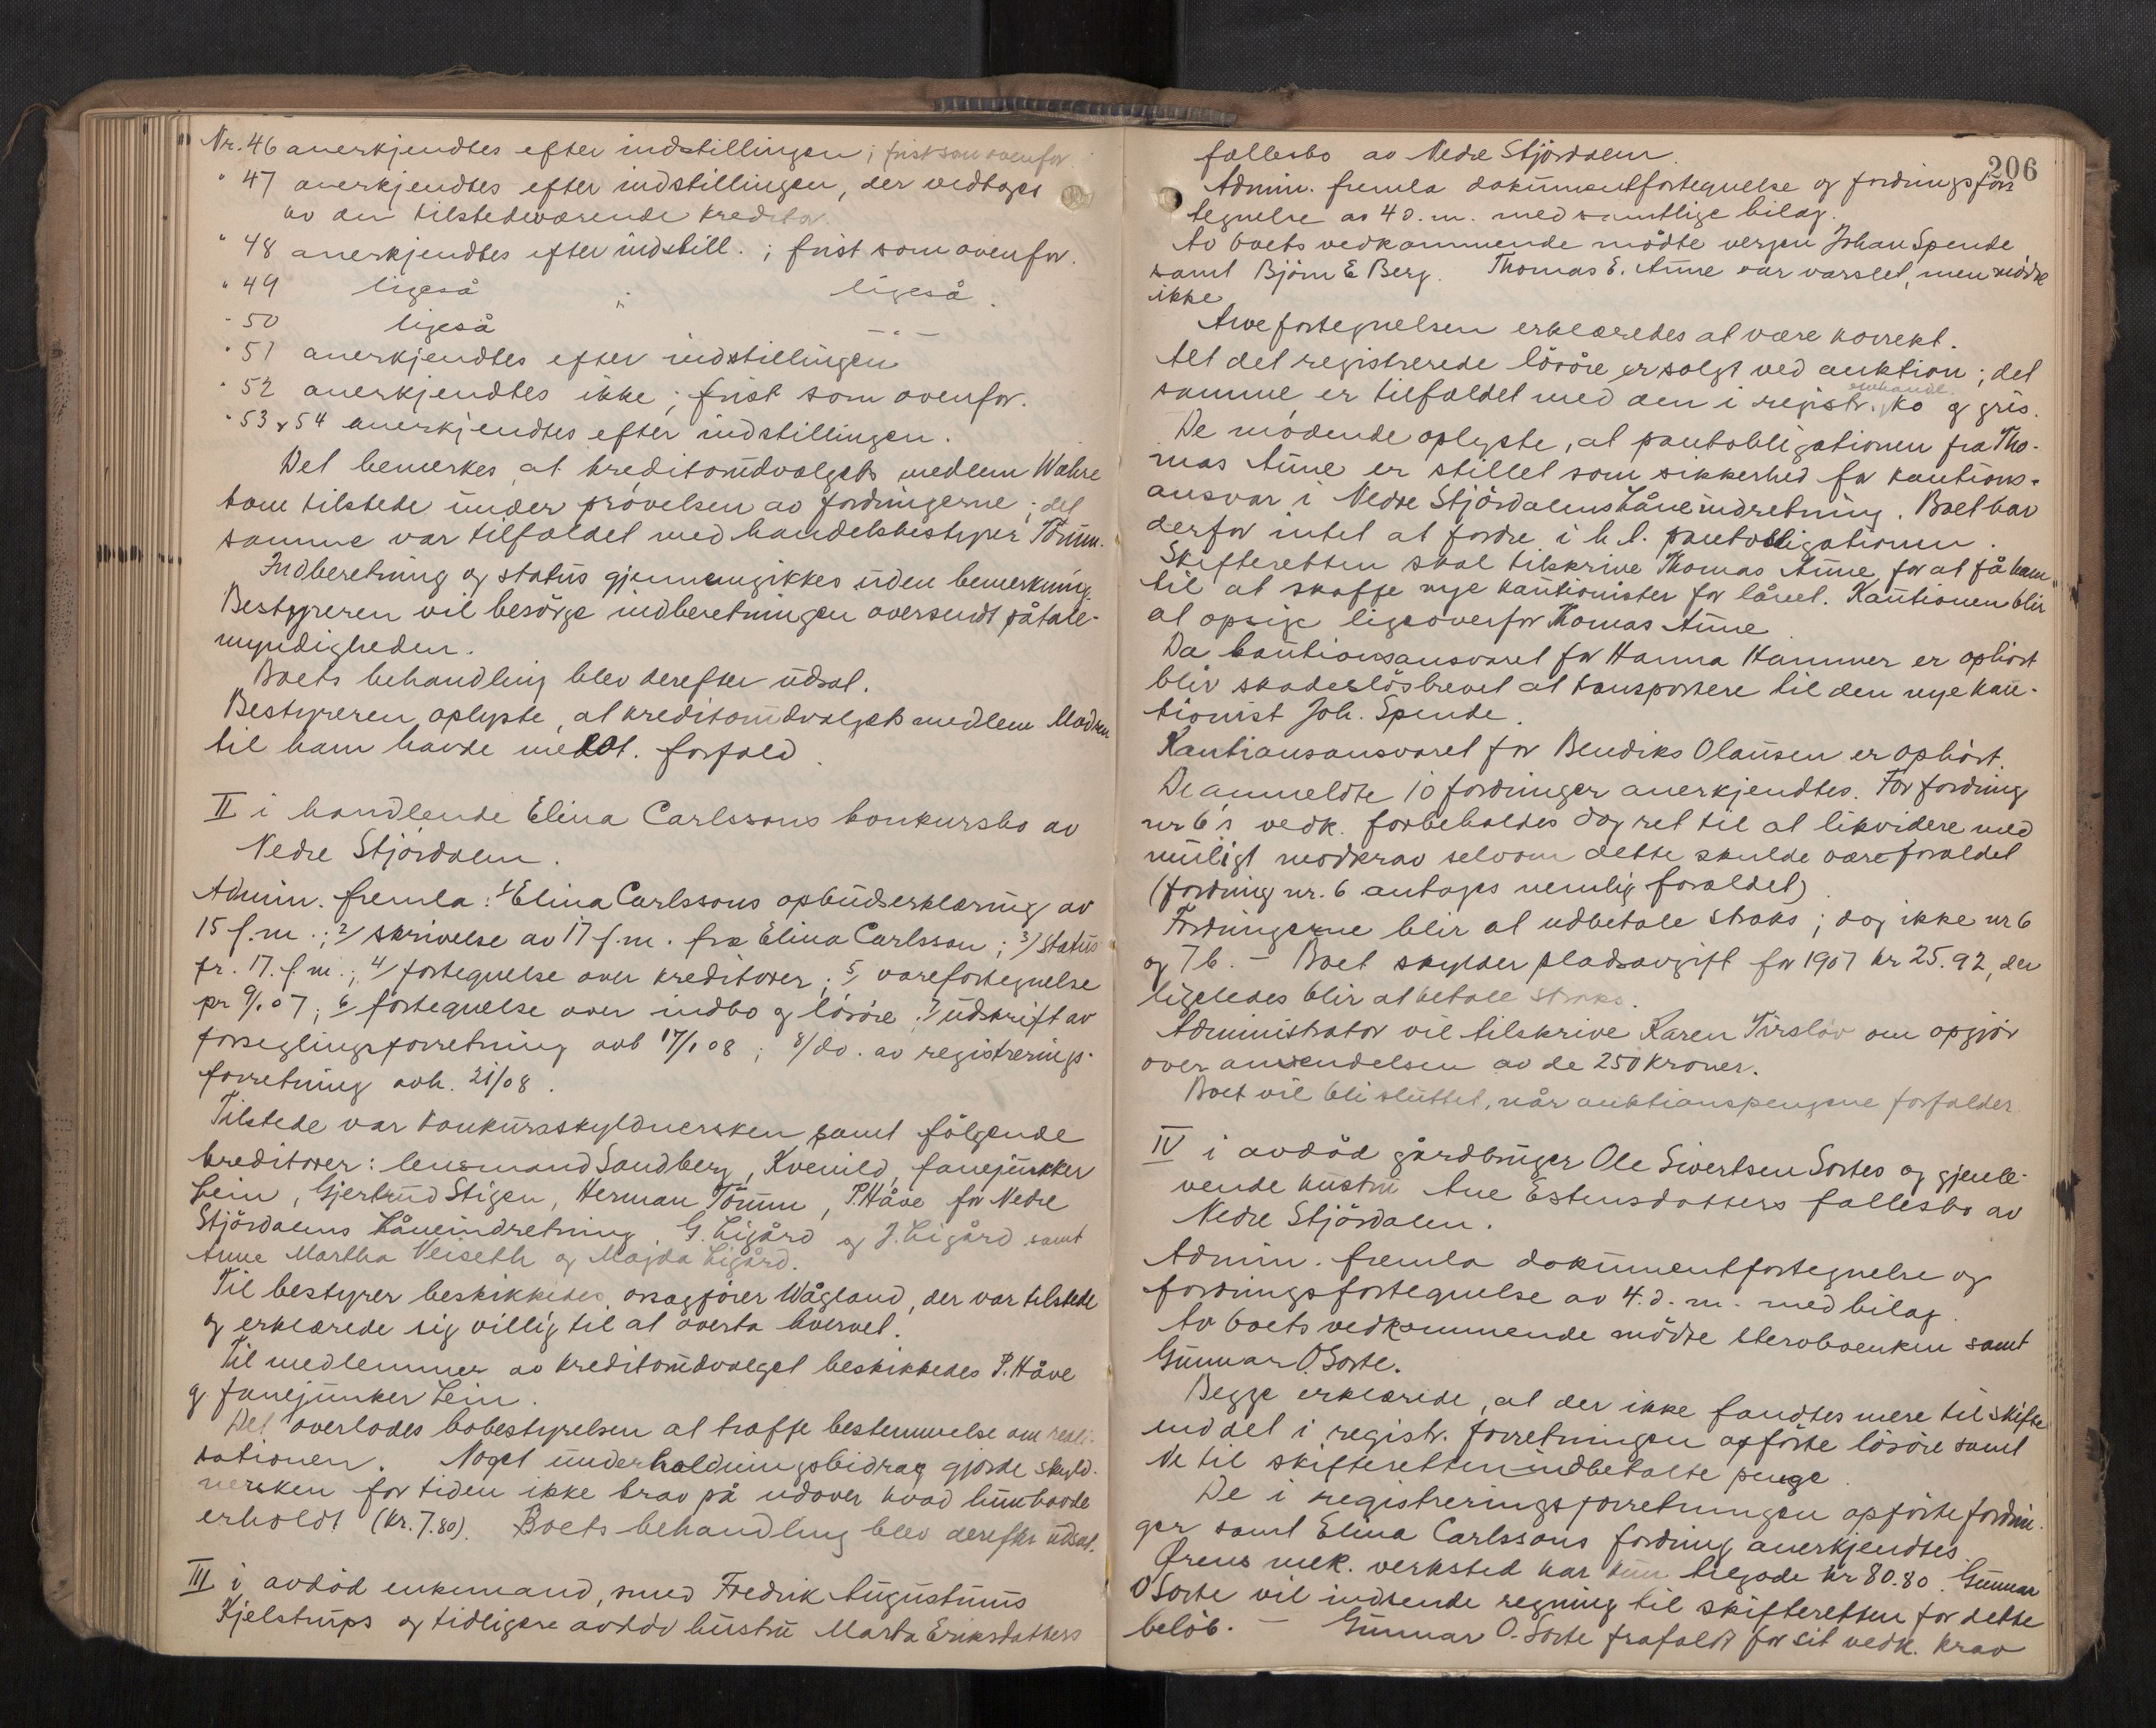 Nr. 46 anerkjendtes efter indstillingen; frist som ovenfor
" 47 anerkjendtes efter indstillingen, der vedtoges
av den tilstedeværende kreditor.
" 48 anerkjendtes efter indstill.; frist som ovenfor.
" 49 ligeså ; ligeså.
" 50 ligeså — " —
" 51 anerkjendtes efter indstillingen
" 52 anerkjendtes ikke; frist som ovenfor.
" 53 & 54 anerkjendtes efter indstillingen.
Det bemerkes, at kreditorudvalgets medlem Wahre
kom tilstede under prøvelsen av fordringerne; det
samme var tilfældet med handelsbestyrer
Indberetning og status gjennemgikkes uden bemerkning.
Bestyreren vil besørge indberetningen oversendt påtale-
myndigheden.
Boets behandling blev derefter udsat.
Bestyreren oplyste, at kreditorudvalgets medlem Madsen
til ham havde meldt. forfald.
II i handlende Elina Carlssons konkursbo av
Nedre Stjørdalen.
Admin. fremla: 1/ Elina Carlssons opbudserklæring av
15 f.m.; 2/ skrivelse av 17 f.m. fra Elina Carlsson; 3/ status
pr. 17. f.m.; 4/ fortegnelse over kreditorer; 5/ varefortegnelse
pr 9/1 07; 6/ fortegnelse over indbo og løsøre; 7/ udskrift av
forseglingsforretning avh 17/1 08; 8/ do. av registrerings-
forretning avh. 21/08.
Tilstede var konkursskyldnersken samt følgende
kreditorer: lensmand Sandberg, Kvenild, fanejunker
Lein, Gjertrud Stigen, Herman Tømm, P. Håve for Nedre
Stjørdalens Låneindretning, G. Ligård og J. Ligård samt
Anne Martha Veiseth og Magda Ligård.
Til bestyrer beskikkedes, orsagfører Wågland, der var tilstede
og erklærede sig villig til at overta hvervet.
Til medlemmer av kreditorudvalget beskikkedes P. Håve
og fanejunker Lein.
Det overlodes bobestyrelsen at træffe bestemmelse om reali-
sationen. Noget underholdningsbidrag gjorde skyld-
nersken for tiden ikke krav på udover hvad hun havde
erholdt (kr. 7.80). Boets behandling blev derefter udsat.
III i avdød enkemand, smed Fredrik Augustinus
Kjelstrups og tidligere avdøv hustru Marta Eriksdatters
206
fællesbo av Nedre Stjørdalen.
Admin. fremla dokumentfortegnelse og fordringsfor-
tegnelse av 4 d.m. med samtlige bilag.
Av boets vedkommende mødte vergen Johan Spende
samt Bjørn E Berg. Thomas E. Aune var varslet, men mødte
ikke
Arvefortegnelsen erklæredes at være korrekt.
Alt det registrerede løsøre er solgt ved auktion; det
samme er tilfældet med den i registr. omhandl. ko og gris.
De mødende oplyste, at pantobligationen fra Tho-
mas Aune er stillet som sikkerhed for kautions-
ansvar i Nedre Stjørdalens Låneindretning. Boet har
derfor intet at fordre i h.t. pantobligationen.
Skifteretten skal tilskrive Thomas Aune for at få ham
til at skaffe nye kautionister for lånet. Kautionen blir
at opsige ligeoverfor Thomas Aune
Da kautionsansvaret for Hanna Hammer er ophørt
blir skadesløsbrevet at transportere til den nye kau-
tionist Joh. Spende.
Kautionsansvaret for Bendiks Olausen er ophørt.
De anmeldte 10 fordringer anerkjendtes. For fordring
nr 6's vedk. forbeholdes dog ret til at likvidere med
muligt modkrav selvom dette skulde være forældet
(fordring nr. 6 antages nemlig forældet).
Fordringerne blir at udbetale straks; dog ikke nr 6
og 7b. — Boet skylder pladsavgift for 1907 kr 25.92, der
ligeledes blir at betale straks.
Administrator vil tilskrive Karen Tirsløv om opgjør
over anvendelsen av de 250 kroner.
Boet vil bli sluttet, når auktionspengene forfalder
IV i avdød gårdbruger Ole Sivertsen Sortes og gjenle-
vende hustru Ane Estensdatters fællesbo av
Nedre Stjørdalen.
Admin. fremla dokumentfortegnelse og
fordringsfortegnelse av 4. d. m. med bilag.
Av boets vedkommende mødte sterboenken samt
Gunnar O. Sorte.
Begge erklærede, at der ikke fandtes mere til skifte
end det i registr. forretningen opførte løsøre samt
de til skifteretten indbetalte penge.
De i registreringsforretningen opførte fordrin-
ger samt Elina Carlssons fordring anerkjendtes.
Ørens mek. verksted har kun tilgode kr 80.80. Gunnar
O Sorte vil indsende regning til skifteretten for dette
beløb. — Gunnar O. Sorte frafaldt for sit vedk. krav